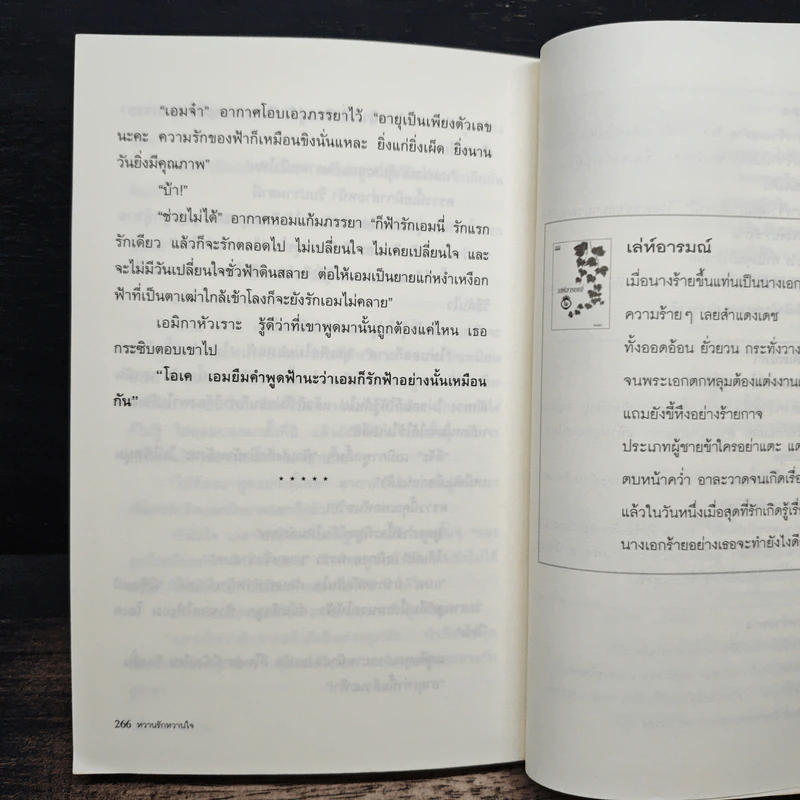 “เอมจ๋า” อากาศโอบเอวภรรยาไว้ “อายุเป็นเพียงตัวเลข
นะคะ ความรักของฟ้าก็เหมือนขิงนั่นแหละ ยิ่งแก่ยิ่งเผ็ด ยิ่งนาน
วันยิ่งมีคุณภาพ”
“บ้า!”
“ช่วยไม่ได้” อากาศหอมแก้มภรรยา “ก็ฟ้ารักเอมนี่ รักแรก
รักเดียว แล้วก็จะรักตลอดไป ไม่เปลี่ยนใจ ไม่เคยเปลี่ยนใจ และ
จะไม่มีวันเปลี่ยนใจชั่วฟ้าดินสลาย ต่อให้เอมเป็นยายแก่หงำเหงือก
ฟ้าที่เป็นตาเฒ่าใกล้เข้าโลงก็จะยังรักเอมไม่คลาย”
เอมิกาหัวเราะ รู้ดีว่าที่เขาพูดมานั้นถูกต้องแค่ไหน เธอ
กระซิบตอบเขาไป
“โอเค เอมยืมคำพูดฟ้านะว่าเอมก็รักฟ้าอย่างนั้นเหมือน
กัน”
* * * * *
266 หวานรักหวานใจ
เล่ห์อารมณ์
เมื่อนางร้ายขึ้นแท่นเป็นนางเอก
ความร้ายๆ เลยสำแดงเดช
ทั้งออดอ้อน ยั่วยวน กระทั่งวาง
จนพระเอกตกหลุมต้องแต่งงาน
แถมยังขี้หึงอย่างร้ายกาจ
ประเภทผู้ชายข้าใครอย่าแตะ
ตบหน้าคว่ำ อาละวาดจนเกิดเรื่อ
แล้วในวันหนึ่งเมื่อสุดที่รักเกิดรู้
นางเอกร้ายอย่างเธอจะทำยังไงดี